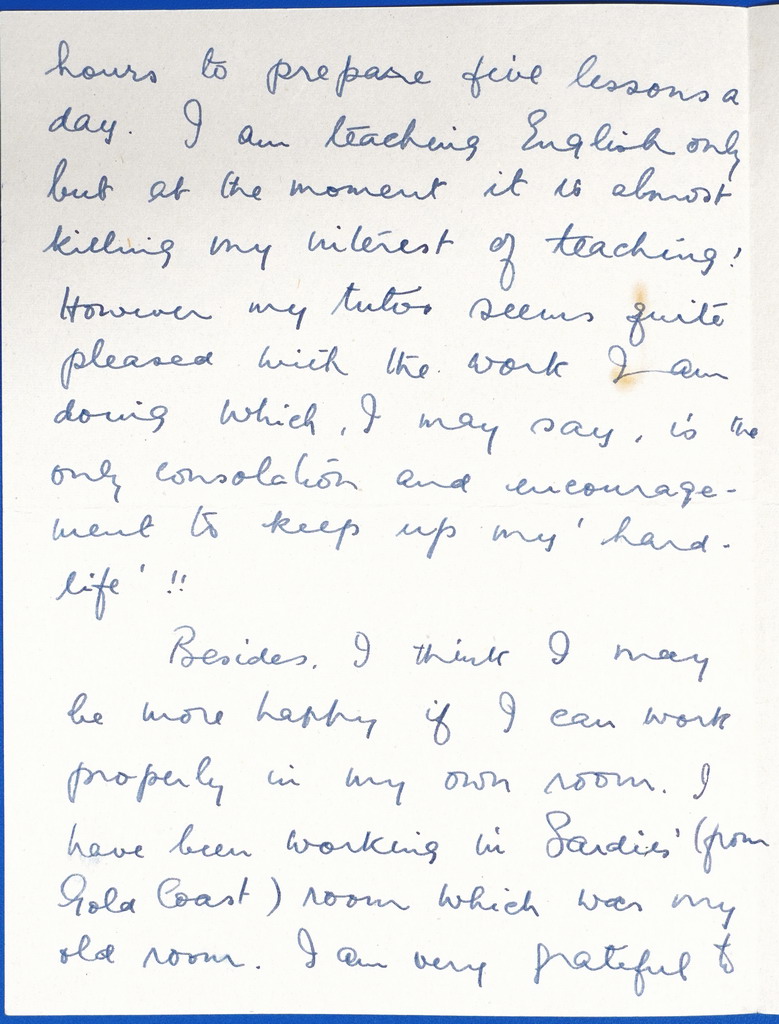 hours to prepare five lessons a
day. I am teaching English only
but at the moment it is almost
killing my interest of teaching!
However my tutor seems quite
pleased with the work I am
doing which, I may say, is the
only consolation and encourage-
ment to keep up my 'hard-
life' !!
Besides, I think I may
be more happy if I can work
properly in my own room. I
have been working in (from
Gold Coast) room which was my
old room. I am very grateful to